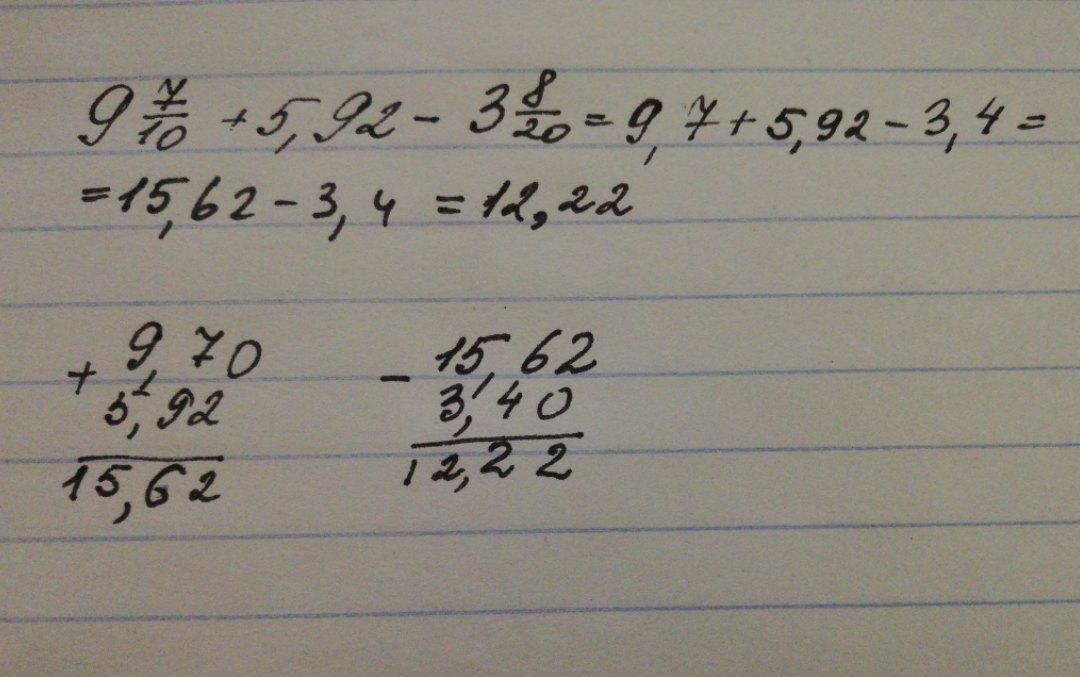 9 7/10 + 5,92 - 3 8/20 = 9,7 + 5,92 - 3,4 =
= 15,62 - 3,4 = 12,22
+ 9,70
1
5,92
15,62
- 15,62
3,40
12,22